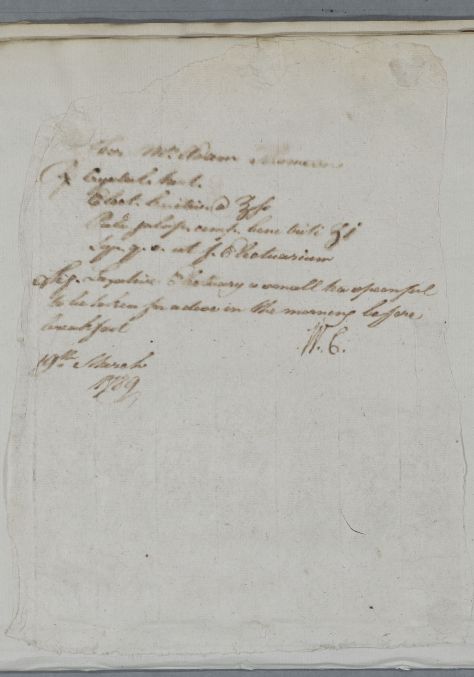 For Mr. Adam
℞ Crystal. tart.
Elect. lenitiv. a ʒſs
Pulv. jalap. comp. bene triti ʒi
Syr. q. s. ut f. Electuarium
Sig. Laxative Electuary a small teaspoonful
to be taken for a dose in the morning before
breakfast
W. C.
19th March
1789